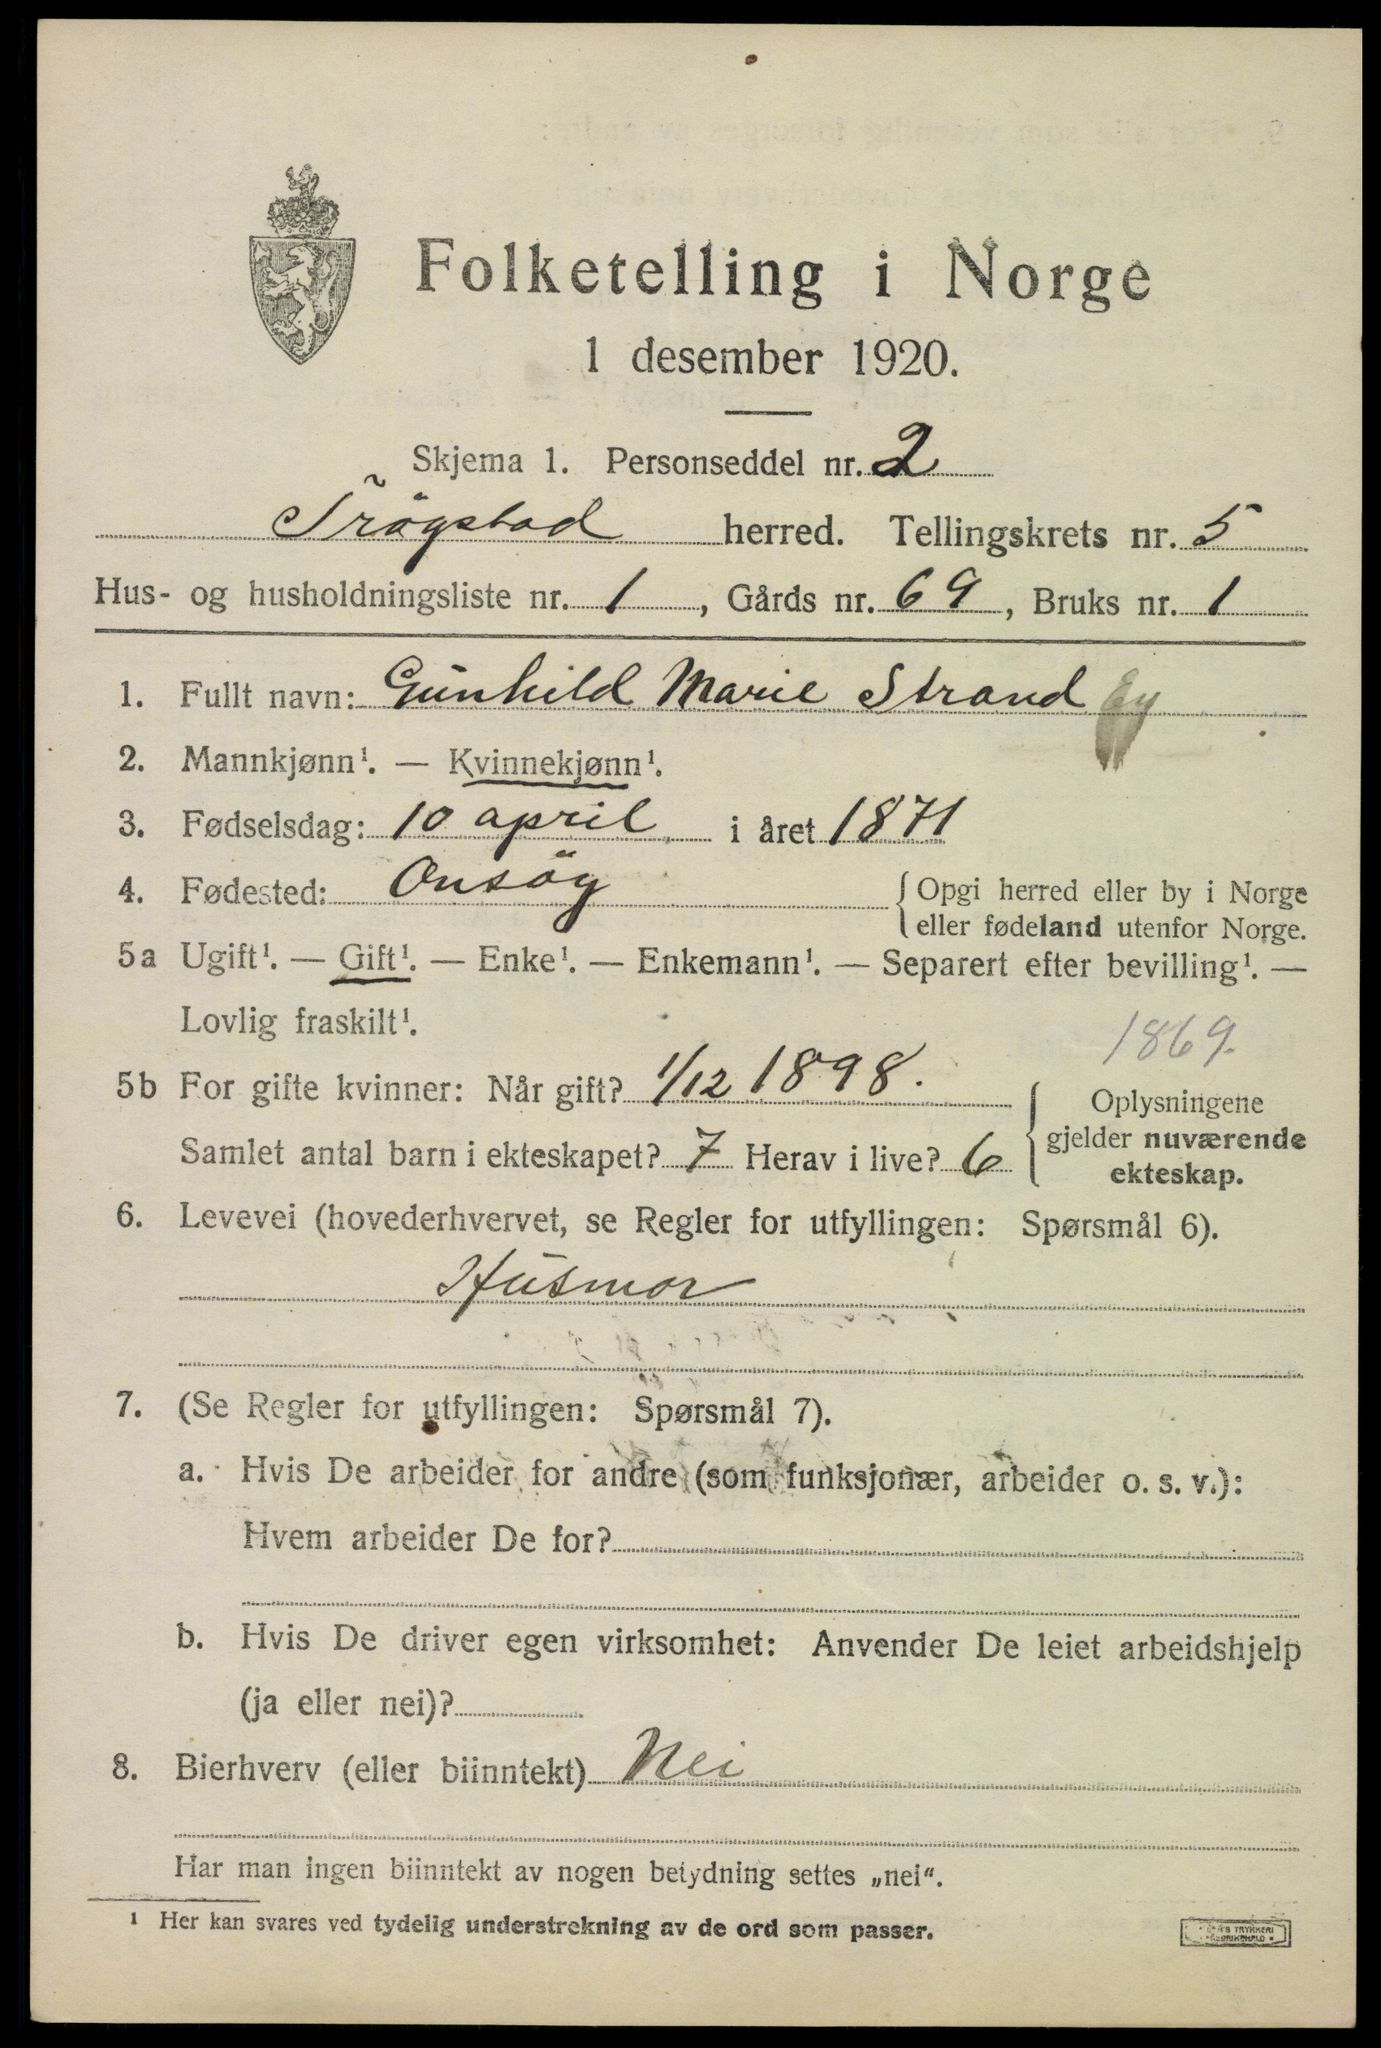 Folketelling i Norge
1 desember 1920.
Skjema 1. Personseddel nr. 2
Trögstad herred. Tellingskrets nr. 5
Hus- og husholdningsliste nr. 1, Gårds nr. 69, Bruks nr. 1
1. Fullt navn: Gunhild Marie Strand
2. Mannkjønn¹. — Kvinnekjønn¹.
3. Fødselsdag: 10 april i året 1871
4. Fødested: Onsöy {Opgi herred eller by i Norge
eller fødeland utenfor Norge.
5a Ugift¹. — Gift¹. — Enke¹. — Enkemann¹. — Separert efter bevilling¹. —
Lovlig fraskilt¹.
1869.
5b For gifte kvinner: Når gift? 1/12 1898.
Samlet antal barn i ekteskapet? 7 Herav i live? 6
{Oplysningene
gjelder nuværende
ekteskap.
6. Levevei (hovederhvervet, se Regler for utfyllingen: Spørsmål 6).
Husmor
7. (Se Regler for utfyllingen: Spørsmål 7).
a. Hvis De arbeider for andre (som funksjonær, arbeider o. s. v.):
Hvem arbeider De for?
b. Hvis De driver egen virksomhet: Anvender De leiet arbeidshjelp
(ja eller nei)?
8. Bierhverv (eller biinntekt) Nei
Har man ingen biinntekt av nogen betydning settes „nei“.
¹ Her kan svares ved tydelig understrekning av de ord som passer.